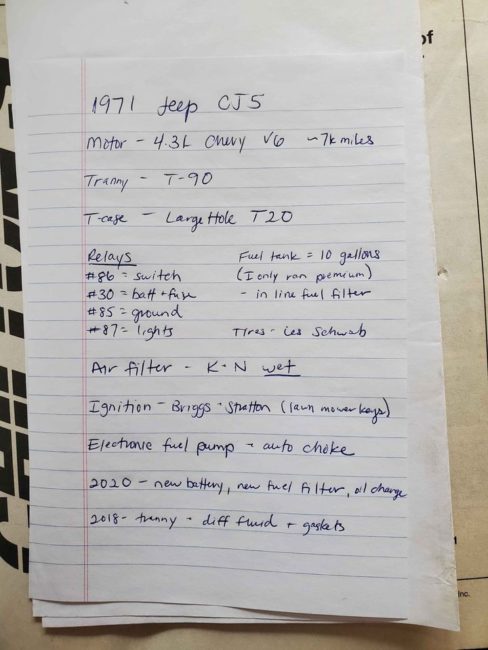 1971 Jeep CJ5
Motor - 4.3L Chevy V6 ~7k miles
Tranny - T-90
T-case - Large Hole T20
Relays
#86 = switch
#30 = batt + fuse
#85 = ground
#87 = lights
Fuel tank = 10 gallons
(I only ran premium)
- in line fuel filter
Tires - Les Schwab
Air filter - K-N wet
Ignition - Briggs - Stratton (lawn mower keys)
Electronic fuel pump - auto choke
2020 - new battery, new fuel filter, oil change
2018 - tranny - diff fluid + gaskets
of
Inc.